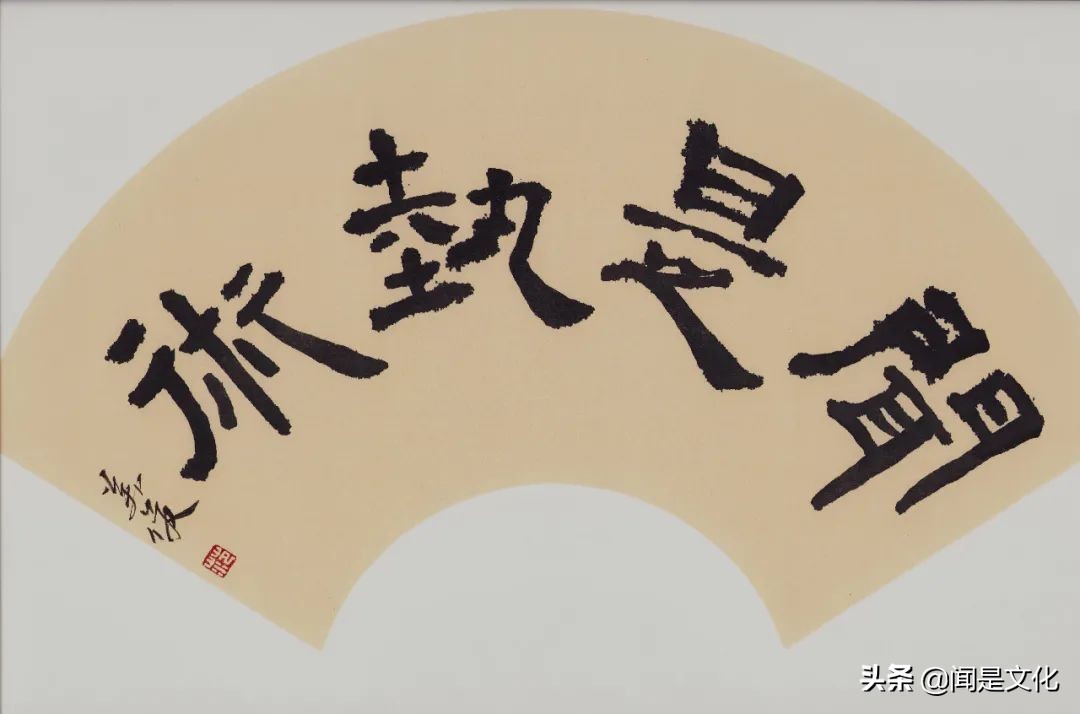 聞是埶術
头条 @闻是文化